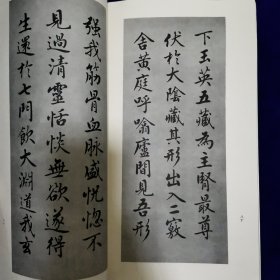 下玉英五藏為主腎最尊
伏於大陰藏其形出入二竅
舍黃庭呼噏廬間見吾形
强我筋骨血脈盛怳惚不
見過清靈恬惔無欲遂得
生還於七門飲大淵道我玄